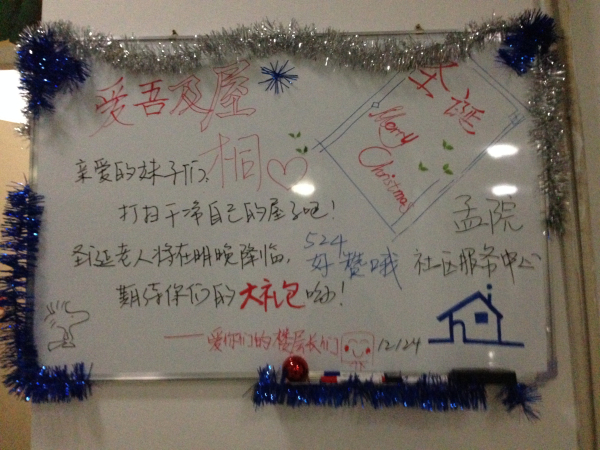 爱吾及屋
圣诞
Merry
Christmas
亲爱的妹子们,
桐
打扫干净自己的屋子吧!
圣诞老人将在明晚降临,
524
好赞哦
孟院
社区服务中心
期待你们的大礼包呦!
——爱你们的楼层长们
12.24